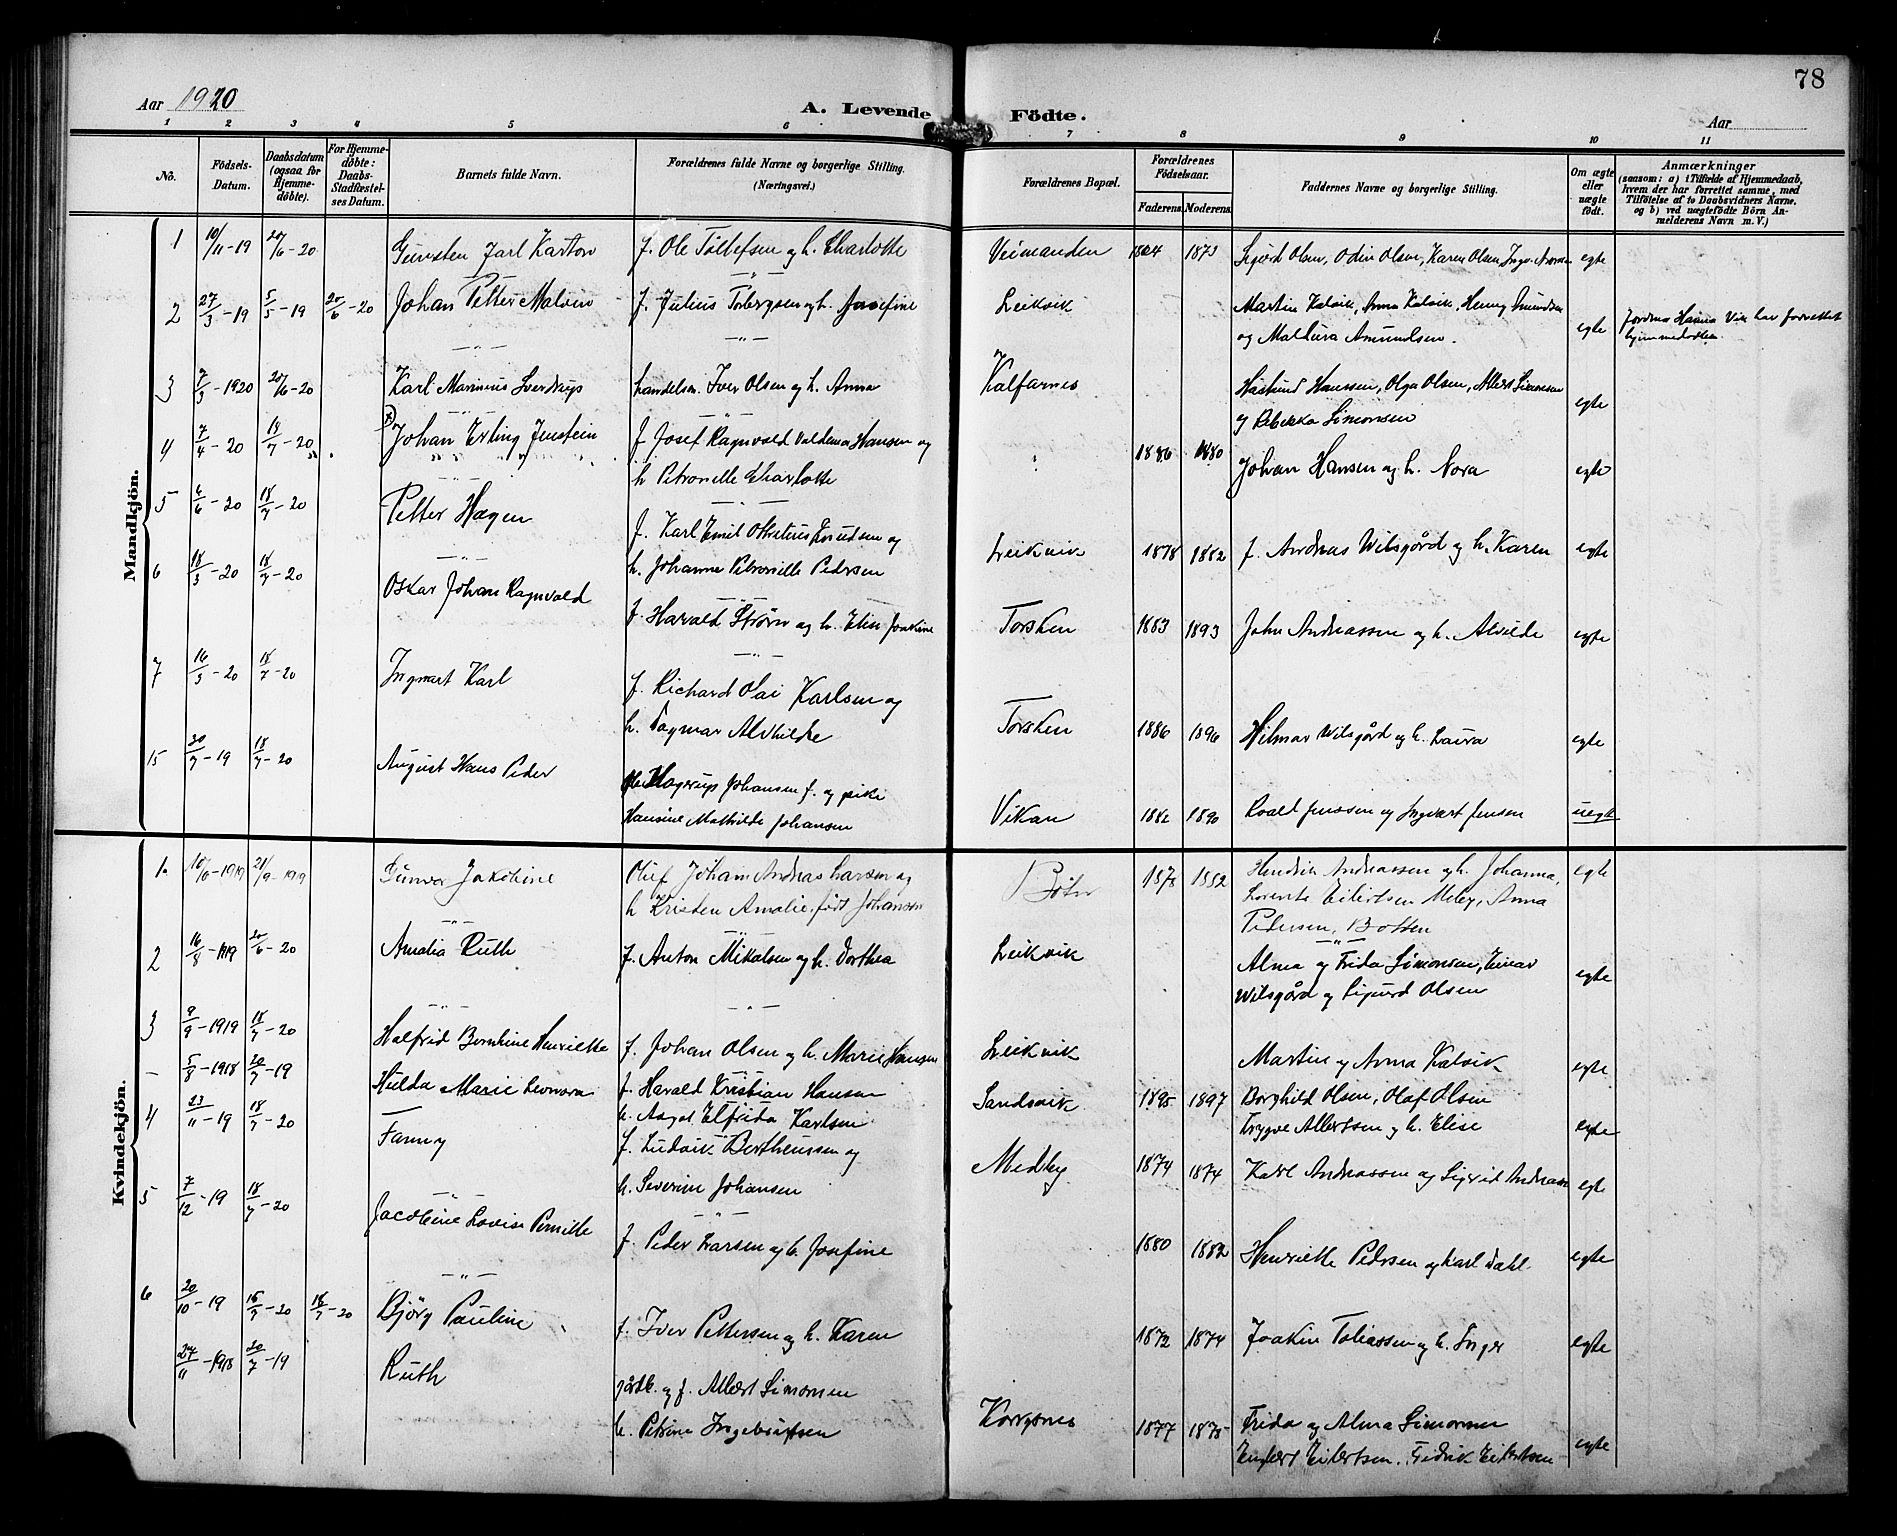 78
Aar 1920
A. Levende Födte.
Aar
1 2 3 4 5 6 7 8 9 10 11
No.
Födsels-Datum.
Daabsdatum (ogsaa for Hjemmedöbte).
For Hjemmedöbte: Daabs-Stadfæstelses Datum.
Barnets fulde Navn.
Forældrenes fulde Navne og borgerlige Stilling. (Næringsvei.)
Forældrenes Bopæl.
Forældrenes Födselsaar.
Faderens. Moderens.
Faddernes Navne og borgerlige Stilling.
Om ægte eller uægte födt.
Anmærkninger
(saasom: a) i Tilfælde af Hjemmedaab, hvem der har forrettet samme, med Tilföielse af to Daabsvidners Navne, og b) ved uægtefödte Börn Anmelderens Navn m. V.)
Mandkjön.
1 10/11-19 20/6-20 Jarl f. Ole Tollefsen og h. Charlotte 1873 Sigurd Olsen, Odin Olsen, Karen Olsen, egte
2 27/3-19 5/5-19 20/6-20 Johan Petter Malvin f. Julius Torbergsen og h. Josefine Leikvik Martin Kalvik, Anna Kalvik, Henry Amundsen
og Amundsen. egte Jordmo Hanna Vik har forrettet
hjemmedaaben
3 7/3-1920 20/6-20 Karl Marinius Sverdrup handelsm. Iver Olsen og h. Anna Kalfarnes Hanssen, Olga Olsen, Albert Simonsen
og Rebekka Simonsen egte
4 7/4-20 18/7-20 Johan Erling Jenstein f. Josef Ragnvald Valdemar Hansen og
h. Petronelle Charlotte 1886 1880 Johan Hansen og h. Nora egte
5 6/6-20 18/7-20 Petter Hagen f. Karl Emil Knudsen og
h. Johanne Petronille Pedersen Leikvik 1878 1882 f. Andreas Wilsgård og h. Karen egte
6 18/3-20 18/7-20 Oskar Johan Ragnvald f. Harald Strøm og h. Elise Torsken 1883 1893 John Andreassen og h. Alvilde egte
7 16/3-20 18/7-20 Ingvart Karl f. Richard Olai Karlsen og
h. Dagmar Alvhilde Torsken 1886 1896 Hilmar Wilsgård og h. Laura egte
15 20/7-19 18/7-20 August Hans Peder Hagerup Johansen f. og pike
Hansine Mathilde Johansen Vikan 1882 1890 Roald Jenssen og Ingvart Jensen uegte
Kvindekjön.
1. 21/9-1919 Gunvor Jakobine Oluf Johan Andreas Larsen og
h. Kristen Amalie, født Johansen Henrik Andreassen og h. Johanna,
Lorents Eilertsen Anna
Pedersen, Botten egte
2 16/8-1919 20/6-20 Amalia Ruth f. Anton Mikalsen og h. Dorthea Leikvik Alma og Frida Simonsen, Einar
Wilsgård og Sigurd Olsen egte
3 9/9-1919 18/7-20 Halfrid Bernhine Henriette f. Johan Olsen og h. Marie Hansen Leikvik Martin og Anna Kalvik egte
- 5/8-1918 20/7-19 Hulda Marie Leonora f. Harald Kristian Hansen
h. Aagot Elfrida Karlsen Sandsvik 1895 1897 Borghild Olsen, Olaf Olsen
Trygve Albertsen og h. Elise egte
4 23/11-19 18/7-20 Fanny f. Ludvik Bertheussen og
h. Severine Johansen Medby 1874 1874 Karl Andreassen og Sigrid Andreassen egte
5 7/12-19 18/7-20 Jacobine Lovise Pernille f. Peder Larsen og h. Josefine 1880 1882 Henriette Pedersen og Karl Dahl egte
6 20/10-19 18/7-20 Bjørg Pauline f. Iver Pettersen og h. Karen 1872 1874 Joakim Tobiassen og h. Inger egte
27/11-1918 20/7-19 Ruth gårdb. og f. Albert Simonsen
h. Petrine Ingebrigtsen 1877 1875 Frida og Alma Simonsen
Engbert Eilertsen, Fredrik Eilertsen egte